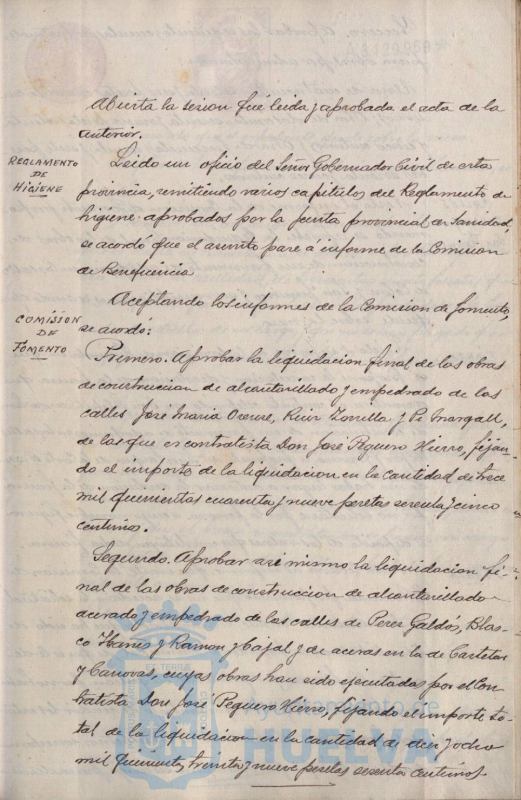 Abierta la sesion fué leida y aprobada el acta de la
anterior.
REGLAMENTO
DE
HIGIENE
Leido un oficio del Señor Gobernador Civil de esta
provincia, remitiendo varios capitulos del Reglamento de
higiene aprobados por la junta provincial de Sanidad,
se acordó que el asunto pase á informe de la Comision
de Beneficencia
COMISION
DE
FOMENTO
Aceptando los informes de la Comision de fomento,
se acordó:
Primero. Aprobar la liquidacion final de las obras
de construccion de alcantarillado y empedrado de las
calles José Maria Orense, Ruiz Zorrilla y Pi Margall,
de las que es contratista Don José Peguero Hierro, fijan-
do el importe de la liquidacion en la cantidad de trece
mil quinientas cuarenta y nueve pesetas setenta y cinco
centimos.
Segundo. Aprobar asi mismo la liquidacion fi-
nal de las obras de construccion de alcantarillado
acerado y empedrado de las calles de Perez Galdós, Blas-
co Ibañes y Ramon y Cajal y de aceras en la de Castelar
y Canovas, cuyas obras han sido ejecutadas por el Con-
tratista Don José Peguero Hierro, fijando el importe to-
tal de la liquidacion en la cantidad de diez y ocho
mil quinientas treinta y nueve pesetas sesenta centimos.
Ayuntamiento de
HUELVA